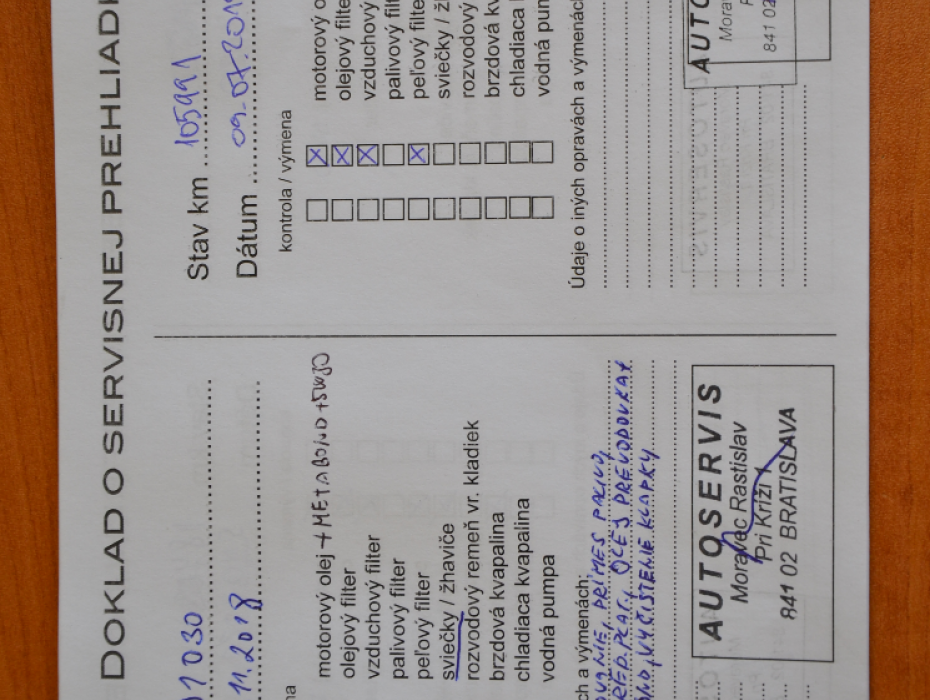 DOKLAD O SERVISNEJ PREHLIADK
030
11.2018
motorový olej + METABOND + 5W30
olejový filter
vzduchový filter
palivový filter
peľový filter
sviečky / žhaviče
rozvodový remeň vr. kladiek
brzdová kvapalina
chladiaca kvapalina
vodná pumpa
ch a výmenách:
PRÍMES PALIVO,
OLEJ PREVODOVKAX
VYČISTENIE KLAPKY.
AUTOSERVIS
Moravec Rastislav
Pri Kríži 1
841 02 BRATISLAVA
Stav km 105991
Dátum 09.07.201
kontrola / výmena
motorový o
olejový filte
vzduchový
palivový filt
peľový filte
sviečky / ž
rozvodový
brzdová kv
chladiaca
vodná pum
Údaje o iných opravách a výmenách
AUTO
Morav
841 02